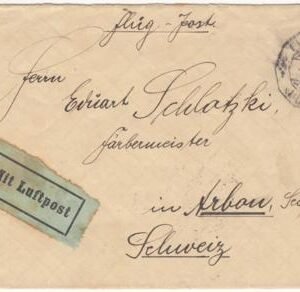 Flug-Post.
Herrn
Eduart Schlotzki,
Färbermeister
in Arbon,
Schweiz
Mit Luftpost